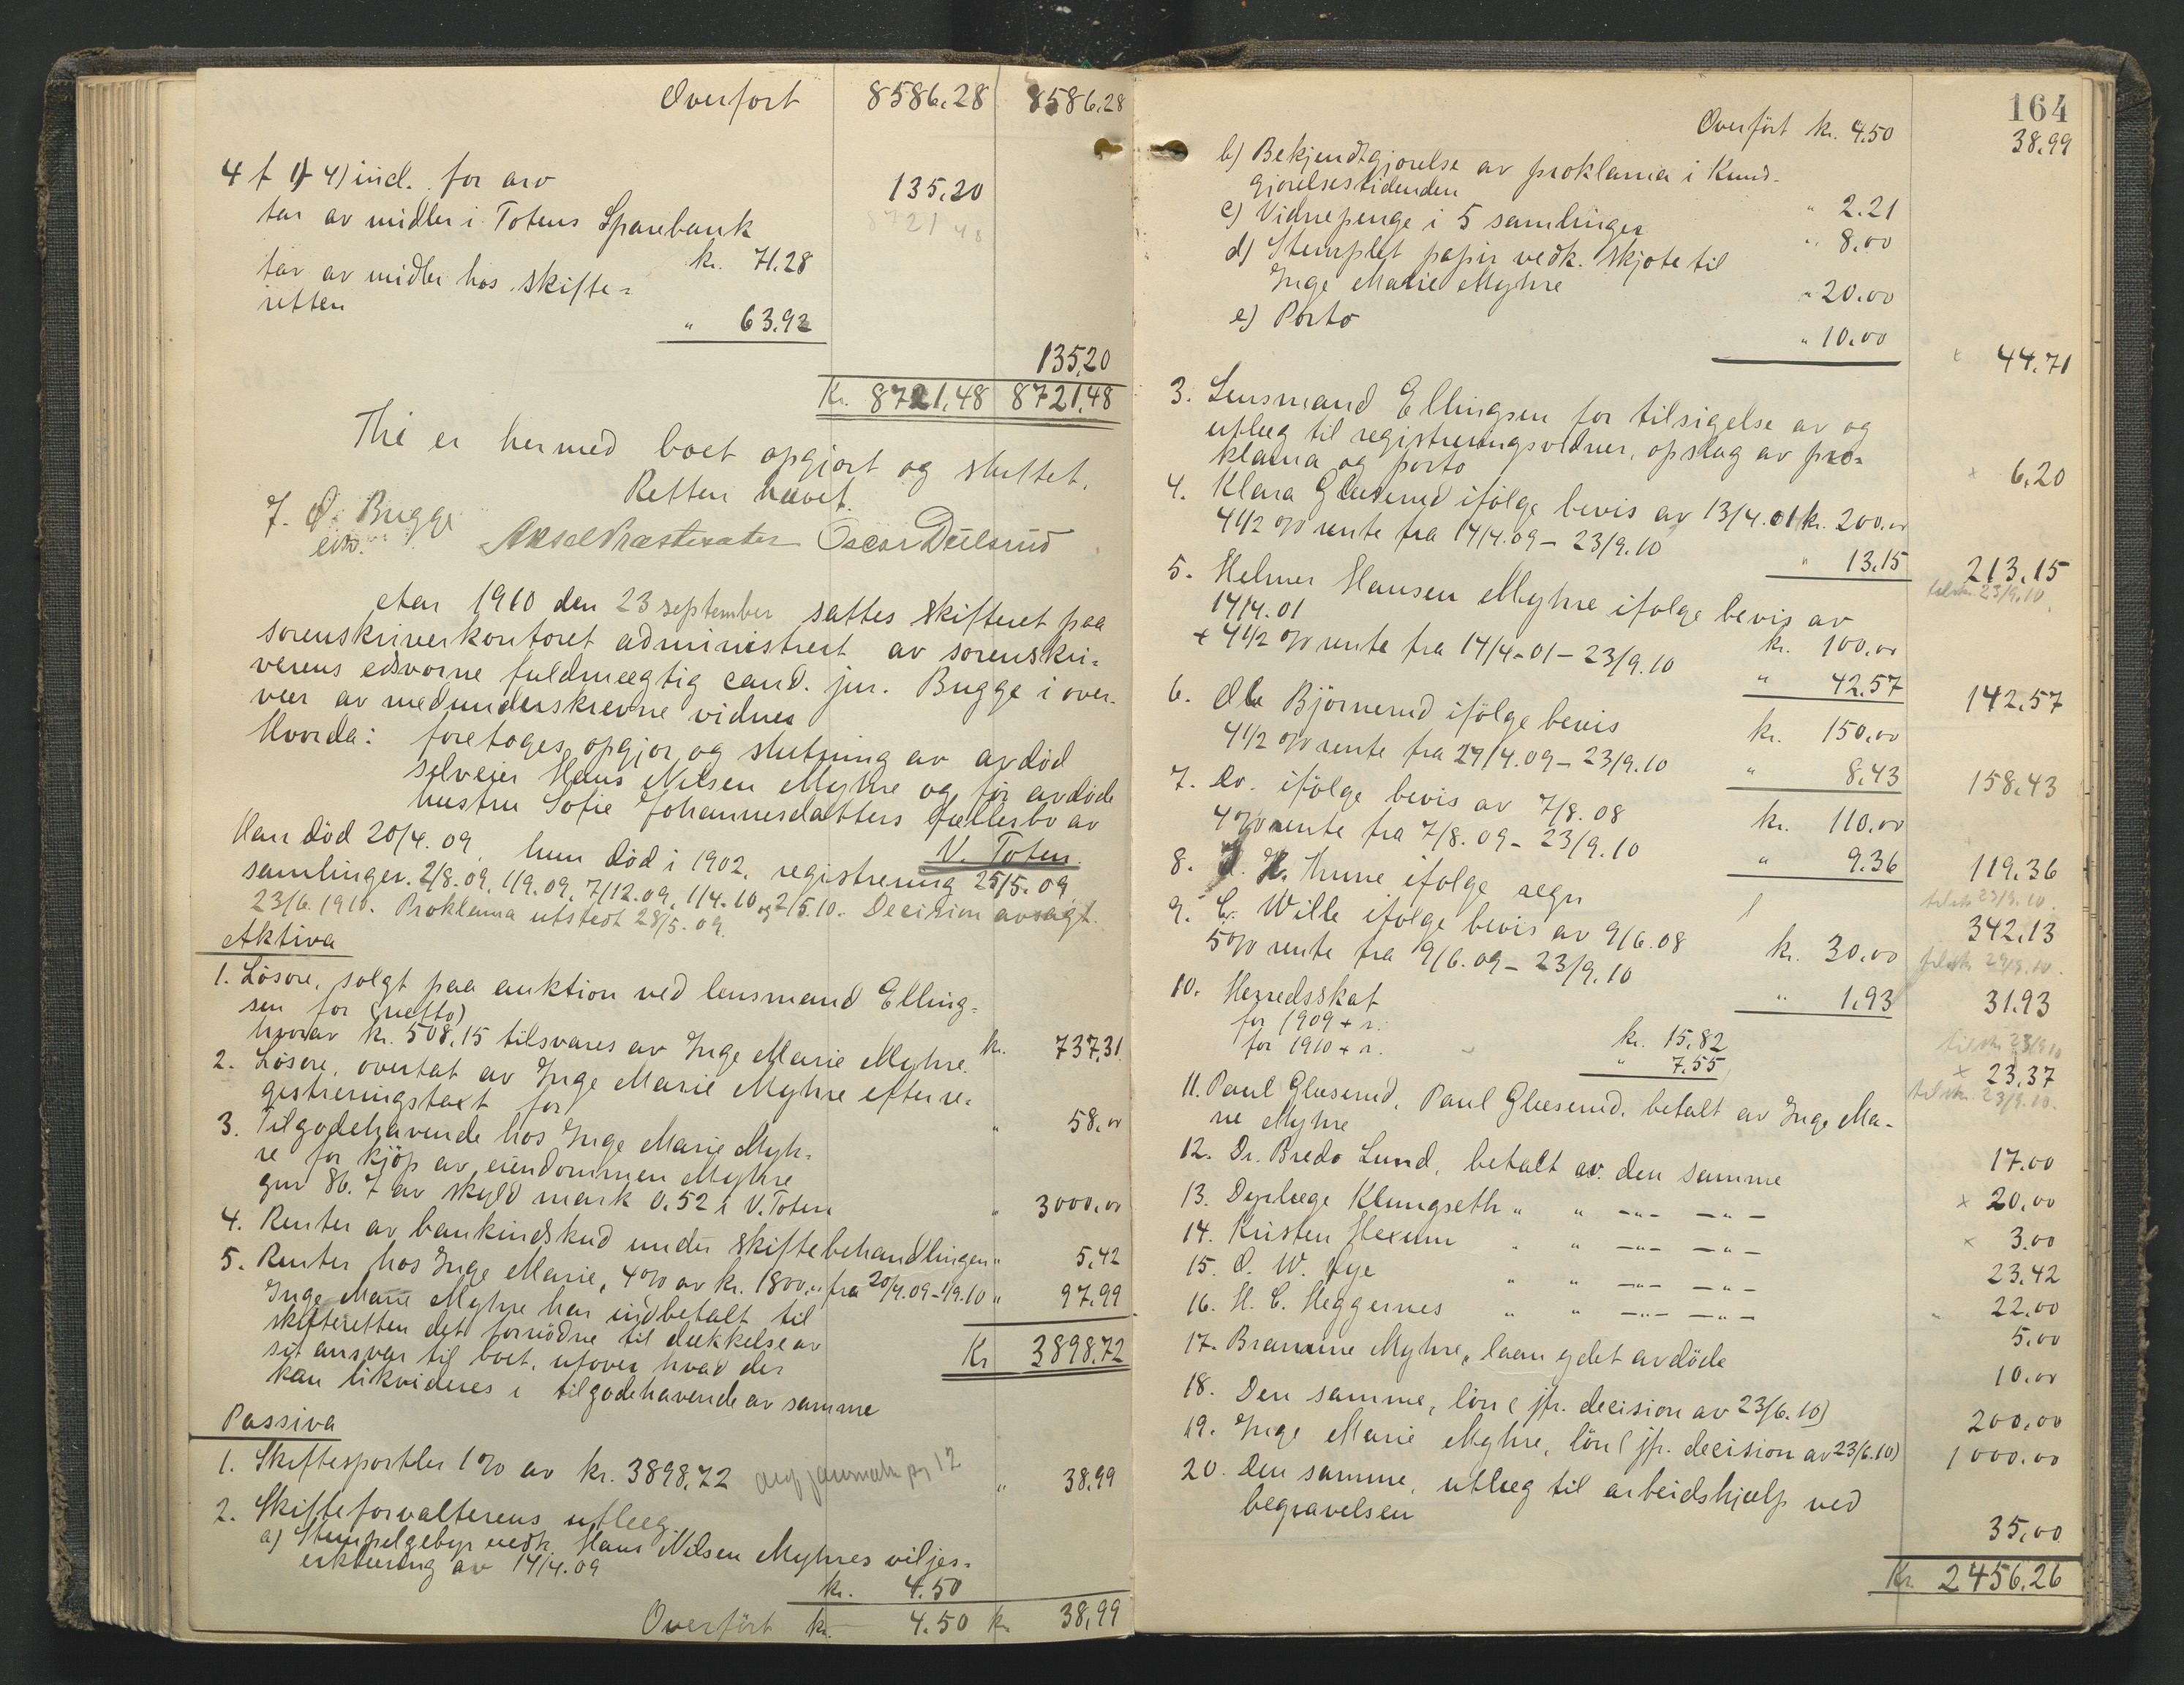 Overført 8586.28 8586.28
4 f 1) 4) incl. for arv 135.20
tar av midler i Totens Sparebank 8721 48
kr. 71.28
tar av midler hos skifte=
retten " 63.92
135.20
Kr. 8721.48 8721.48
Thi er hermed boet opgjort og sluttet.
Retten hævet.
J. Ø. Bugge
Oscar Duelsrud
Aar 1910 den 23 september sattes skifteret paa
sorenskriverkontoret administrert av sorenskri=
verens edsvorne fuldmægtig cand. jur. Bugge i over-
vær av medunderskrevne vidner
Hvorda: foretoges opgjør og slutning av avdød
selveier Hans Nilsen Myhre og før avdøde
hustru Sofie Johannesdatters fællesbo av
V. Toten.
Han død 20/4.09, hun død i 1902, registrering 25/5.09,
samlinger. 2/8.09, 1/9.09, 7/12.09, 1/4.10 og 2/5.10. Decision avsagt
23/6.1910. Proklama utstedt 28/5.09.
Aktiva
1. Løsøre, solgt paa auktion ved lensmand Elling=
sen for (netto) kr. 737,31
hvorav kr. 508,15 tilsvares av Inge Marie Myhre.
2. Løsøre, overtat av Inge Marie Myhre efter re=
gistreringstaxt for " 58.00
3. Tilgodehavende hos Inge Marie Myh=
re for kjøp av eiendommen Myhre
gnr 86.7 av skyld mark 0.52 i V. Toten " 3000.00
4. Renter av bankindskud under skiftebehandlingen " 5,42
5. Renter hos Inge Marie, 4% av kr. 1800.00 fra 20/4.09-1/9.10 " 97.99
Inge Marie Myhre har indbetalt til
skifteretten det fornødne til dækkelse av
sit ansvar til boet, utover hvad der Kr 3898.72
kan likvideres i tilgodehavende av samme
Passiva
1. Skiftesportler 1% av kr. 3898,72 " 38.99
2. Skifteforvalterens utlæg.
a) Stempelgebyr vedk. Hans Nilsen Myhres viljes=
erklæring av 14/4.09
kr. 4.50
Overført kr. 4.50 kr. 38,99
164
Overført kr. 4.50 38.99
b) Bekjendtgjørelse av proklama i Kund-
gjørelsestidenden " 2.21
c) Vidnepenge i 5 samlinger " 8.00
d) Stemplet papir vedk. skjøte til
Inge Marie Myhre " 20.00
e) Porto " 10.00
x 44.71
3. Lensmand Ellingsen for tilsigelse av og
utlæg til registreringsvidner, opslag av pro=
klama og porto x 6,20
4. Klara Glæserud ifølge bevis av 13/4.01 kr. 200.00
4 1/2 % rente fra 14/4.09 - 23/9.10 " 13.15
213.15
tilskr. 23/9.10.
5. Helmer Hansen Myhre ifølge bevis av
14/4.01 kr. 100.00
+ 4 1/2 % rente fra 14/4-01 - 23/9.10 " 42.57
142.57
6. Ole Bjørnerud ifølge bevis kr. 150.00
4 1/2 % rente fra 24/4.09 - 23/9.10 " 8.43
158.43
7. Do. ifølge bevis av 7/8.08 kr. 110.00
4% rente fra 7/8.09 - 23/9.10 " 9.36
119.36
tilskr. 23/9.10.
8. H. Thune ifølge regn 342.13
9. C. Wille ifølge bevis av 9/6.08 kr. 30.00
5% rente fra 9/6.09 - 23/9.10 " 1.93
31.93
10. Herredsskat
for 1909 + r. kr. 15.82
for 1910 + r. " 7.55
x 23.37
tilskr. 23/9.10.
11. Paul Glæserud, Paul Glæserud, betalt av Inge Ma-
rie Myhre 17.00
12. Dr. Bredo Lund, betalt av den samme x 20.00
13. Dyrlæge Klungseth " " -"- -"- x 3.00
14. Kristen Hexum " " -"- -"- 23.42
15. O. W. Fye " " -"- -"- 22.00
16. H. C. Heggernes " " -"- -"- 5.00
17. Bramine Myhre, laan ydet avdøde 10.00
18. Den samme, løn (jfr. decision av 23/6.10) 200.00
19. Inge Marie Myhre, løn (jfr. decision av 23/6.10) 1000.00
20. Den samme, utlæg til arbeidshjælp ved
begravelsen 35.00
Kr. 2456.26